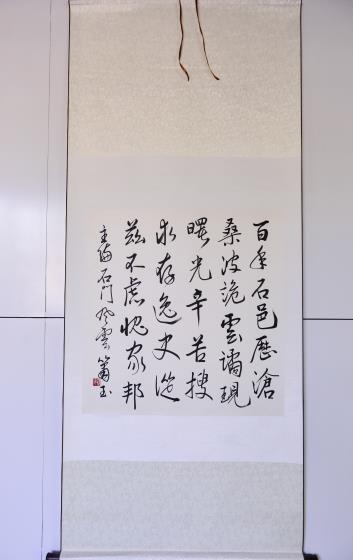 百年石邑歷滄
桑波詭雲譎現
曙光辛苦搜
求存逸史從
茲不慮愧家邦
主編石門風雲 玉